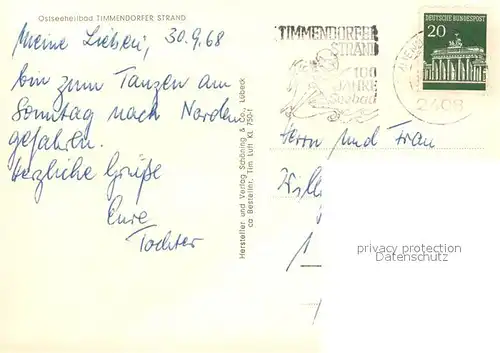 Ostseeheilbad TIMMENDORFER STRAND
Meine Lieben, 30.9.68
bin zum Tanzen am
Sonntag nach Norden
gefahren.
Herzliche Grüße
Eure
Tochter
Hersteller und Verlag Schöning & Co., Lübeck
TIMMENDORFER
STRAND
100
JAHRE
Seebad
DEUTSCHE BUNDESPOST
20
2408
Herrn und Frau
privacy protection
Datenschutz